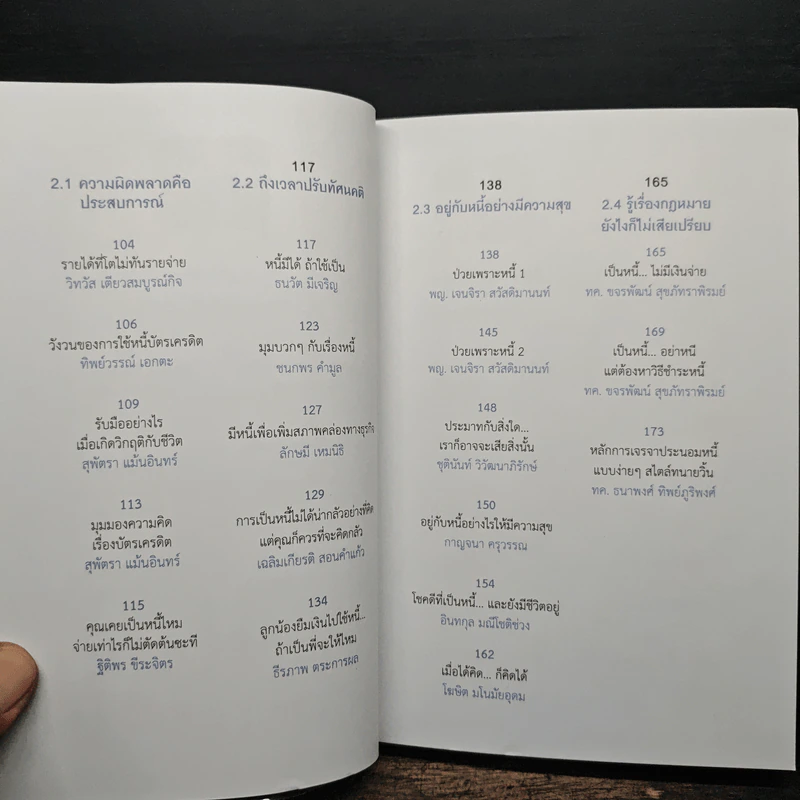 2.1 ความผิดพลาดคือ
ประสบการณ์
104
รายได้ที่โตไม่ทันรายจ่าย
วิทวัส เตียวสมบูรณ์กิจ
106
วังวนของการใช้หนี้บัตรเครดิต
ทิพย์วรรณ์ เอกตะ
109
รับมืออย่างไร
เมื่อเกิดวิกฤติกับชีวิต
สุพัตรา แม้นอินทร์
113
มุมมองความคิด
เรื่องบัตรเครดิต
สุพัตรา แม้นอินทร์
115
คุณเคยเป็นหนี้ไหม
จ่ายเท่าไรก็ไม่ตัดต้นซะที
ฐิติพร ขีระจิตร
117
2.2 ถึงเวลาปรับทัศนคติ
117
หนี้มีได้ ถ้าใช้เป็น
ธนวัต มีเจริญ
123
มุมบวกๆ กับเรื่องหนี้
ชนกพร คำมูล
127
มีหนี้เพื่อเพิ่มสภาพคล่องทางธุรกิจ
ลักษมี เหมนิธิ
129
การเป็นหนี้ไม่ได้น่ากลัวอย่างที่คิด
แต่คุณก็ควรที่จะคิดกลัว
เฉลิมเกียรติ สอนคำแก้ว
134
ลูกน้องยืมเงินไปใช้หนี้...
ถ้าเป็นพี่จะให้ไหม
ธีรภาพ ตระการผล
138
2.3 อยู่กับหนี้อย่างมีความสุข
138
ป่วยเพราะหนี้ 1
พญ. เจนจิรา สวัสดิมานนท์
145
ป่วยเพราะหนี้ 2
พญ. เจนจิรา สวัสดิมานนท์
148
ประมาทกับสิ่งใด...
เราก็อาจจะเสียสิ่งนั้น
ชุตินันท์ วิวัฒนาภิรักษ์
150
อยู่กับหนี้อย่างไรให้มีความสุข
กาญจนา ครุวรรณ
154
โชคดีที่เป็นหนี้... และยังมีชีวิตอยู่
อินทกุล มณีโชติช่วง
162
เมื่อได้คิด... ก็คิดได้
โฆษิต มโนมัยอุดม
165
2.4 รู้เรื่องกฎหมาย
ยังไงก็ไม่เสียเปรียบ
165
เป็นหนี้... ไม่มีเงินจ่าย
ทค. ขจรพัฒน์ สุขภัทราพิรมย์
169
เป็นหนี้... อย่าหนี
แต่ต้องหาวิธีชำระหนี้
ทค. ขจรพัฒน์ สุขภัทราพิรมย์
173
หลักการเจรจาประนอมหนี้
แบบง่ายๆ สไตล์ทนายวิ้น
ทค. ธนาพงศ์ ทิพย์ภูริพงศ์